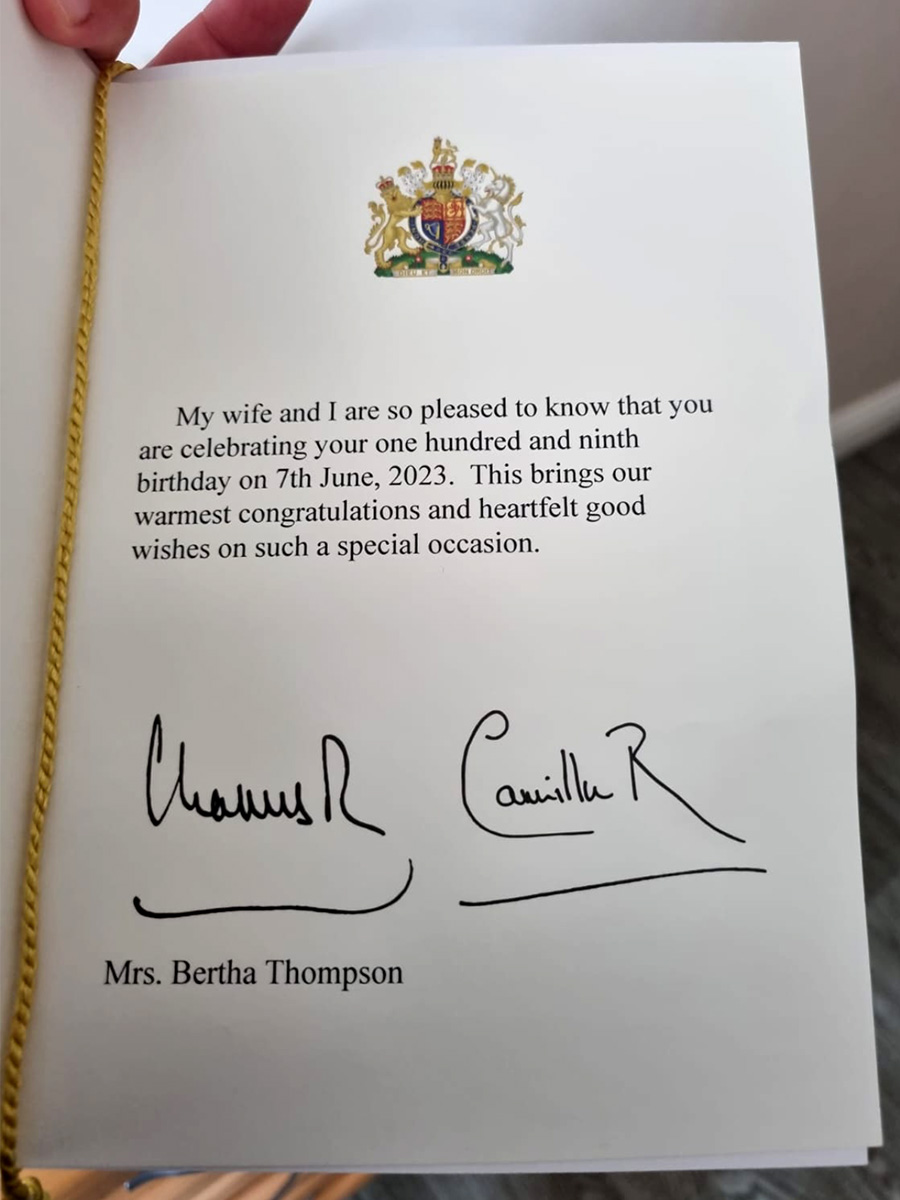 DIEU ET MON DROIT
My wife and I are so pleased to know that you
are celebrating your one hundred and ninth
birthday on 7th June, 2023. This brings our
warmest congratulations and heartfelt good
wishes on such a special occasion.
Charles R
Camilla R
Mrs. Bertha Thompson